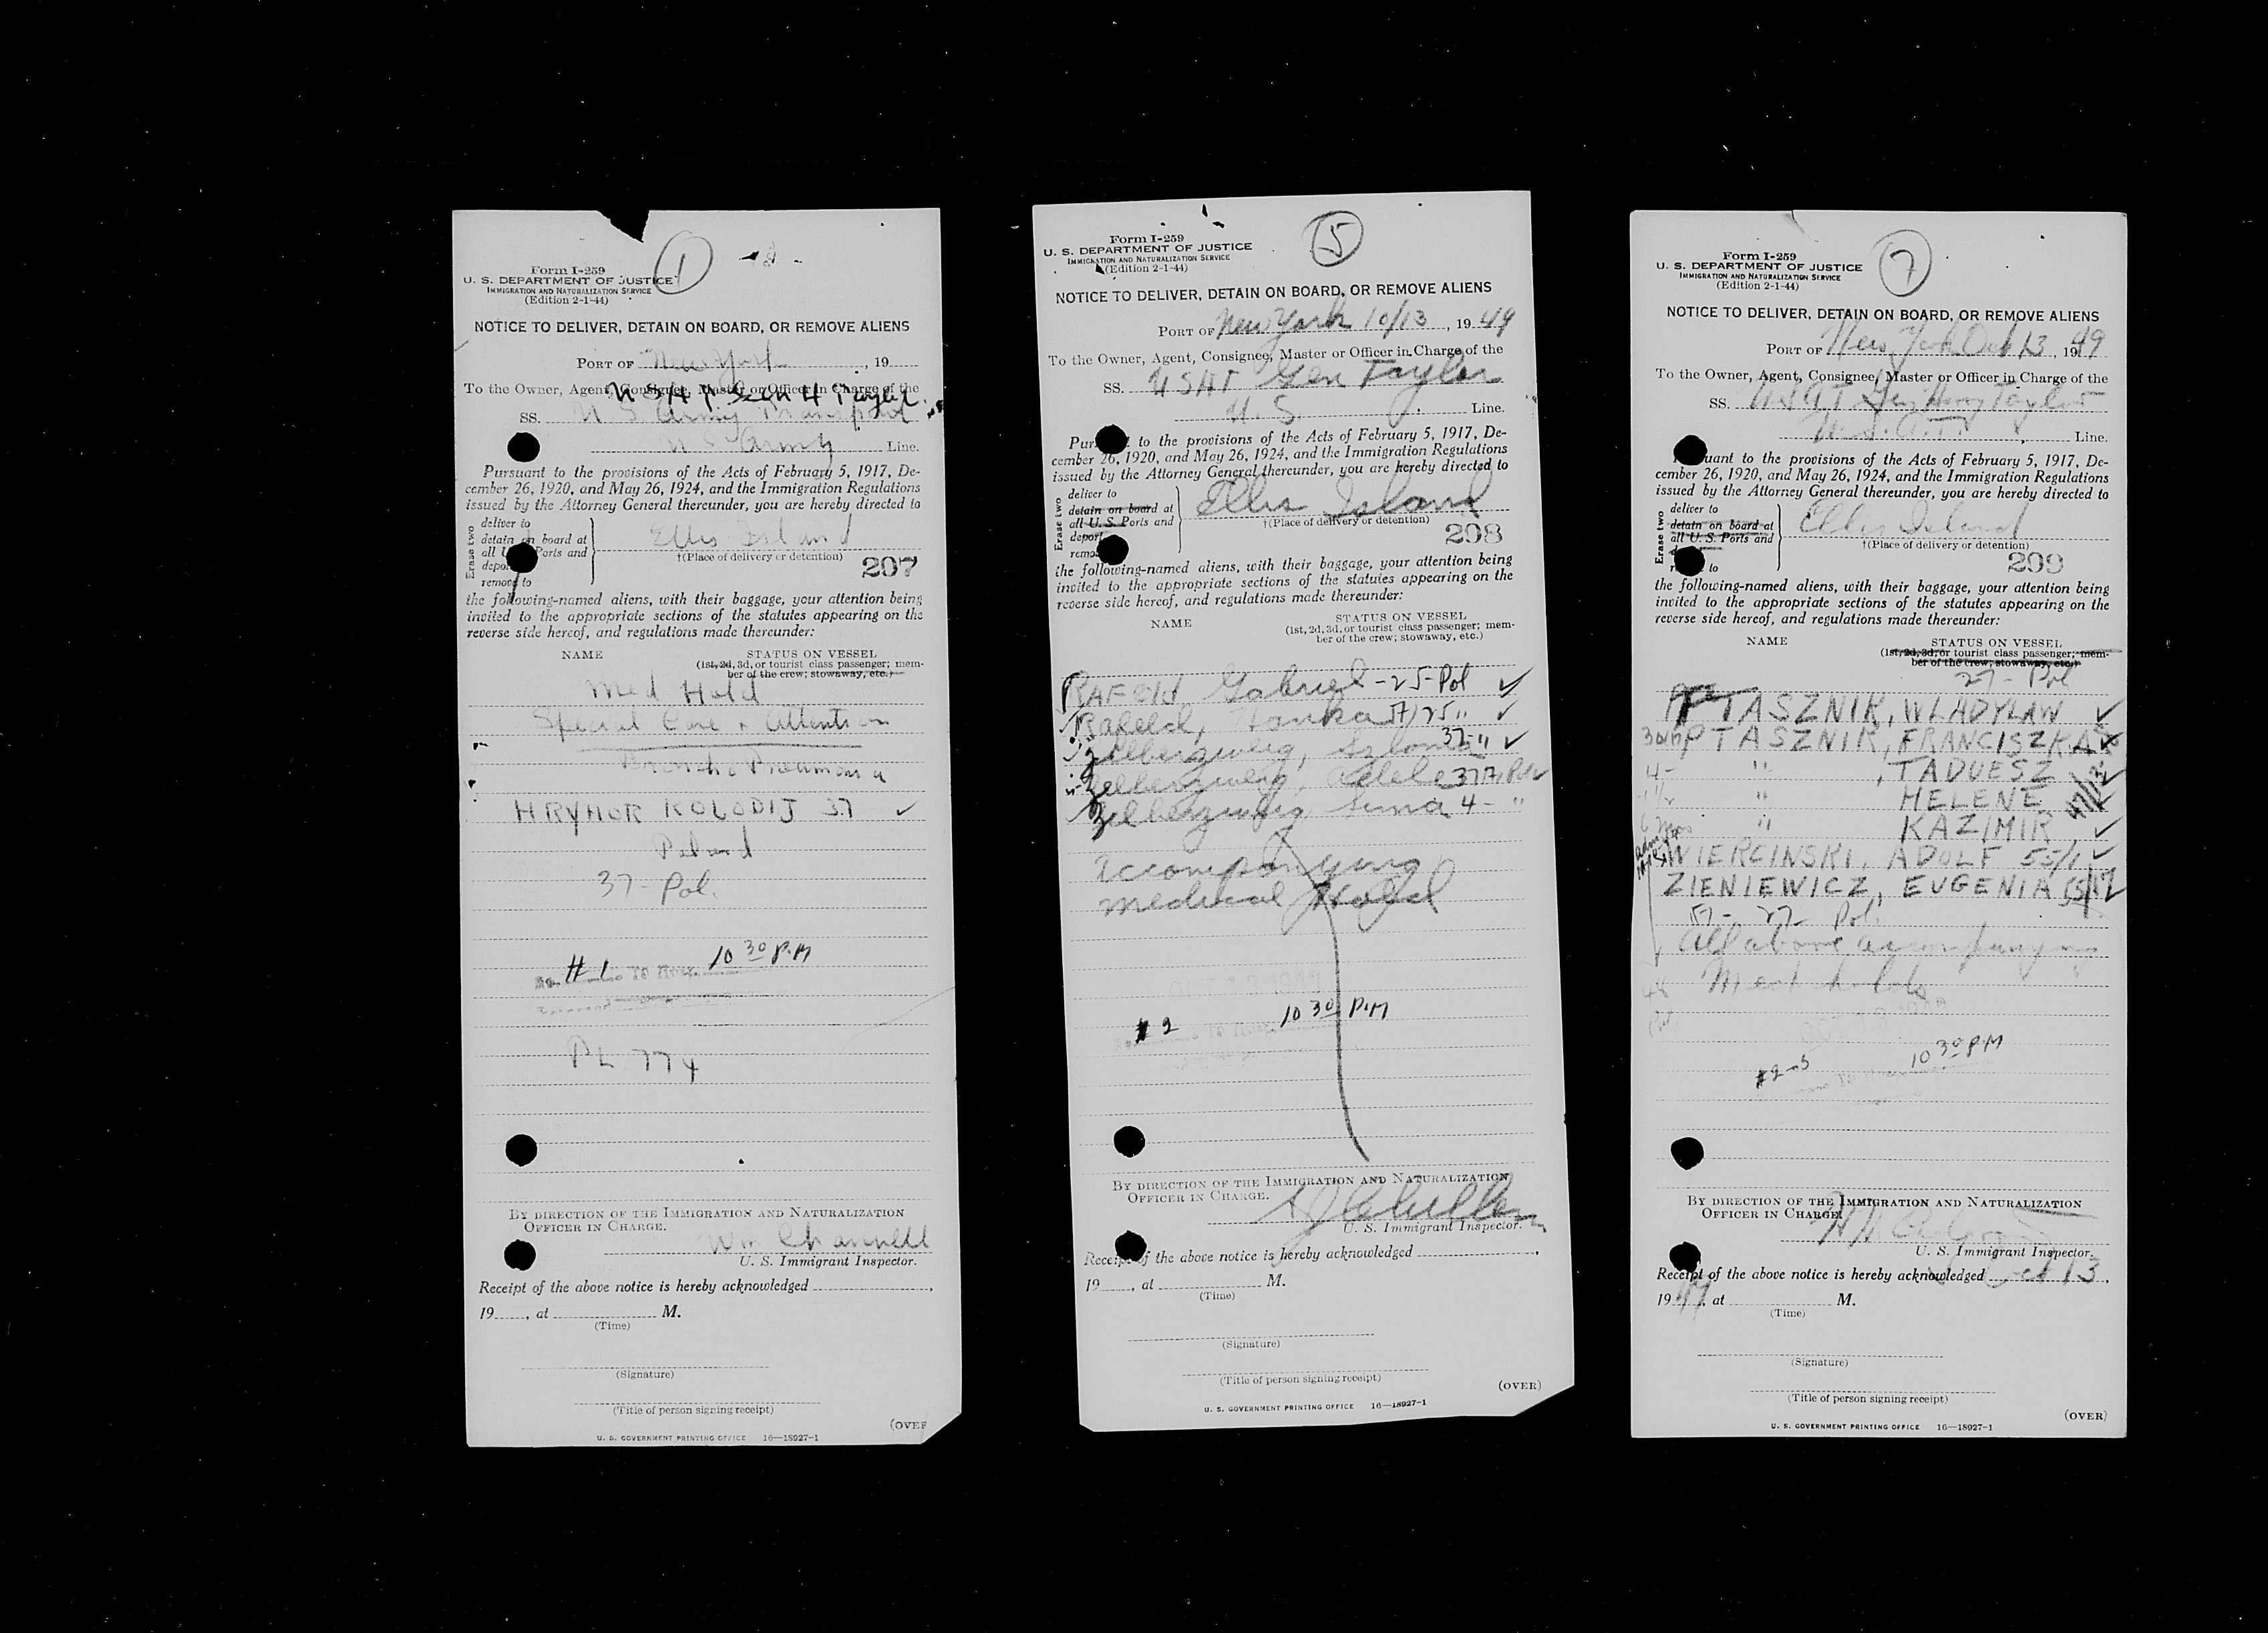 1
Form I-259
U. S. DEPARTMENT OF JUSTICE
IMMIGRATION AND NATURALIZATION SERVICE
(Edition 2-1-44)
NOTICE TO DELIVER, DETAIN ON BOARD, OR REMOVE ALIENS
PORT OF New York, 19
To the Owner, Agent, Consignee, Master or Officer in Charge of the
SS. U S Army Transport
U S Army Line.
Pursuant to the provisions of the Acts of February 5, 1917, De-
cember 26, 1920, and May 26, 1924, and the Immigration Regulations
issued by the Attorney General thereunder, you are hereby directed to
Erase two
deliver to
detain on board at
all U Ports and
depor
remove to
Ellis Island
†(Place of delivery or detention)
207
the following-named aliens, with their baggage, your attention being
invited to the appropriate sections of the statutes appearing on the
reverse side hereof, and regulations made thereunder:
NAME STATUS ON VESSEL
(1st, 2d, 3d, or tourist class passenger; mem-
ber of the crew; stowaway, etc.)
Med Hold
Special Care + Attention
Broncho Pneumonia
HRYHOR KOLODIJ 37 ✓
Poland
37- Pol.
#1 10 30 P.M
PL 774
BY DIRECTION OF THE IMMIGRATION AND NATURALIZATION
OFFICER IN CHARGE.
Wm Channell
U. S. Immigrant Inspector.
Receipt of the above notice is hereby acknowledged
19, at M.
(Time)
(Signature)
(Title of person signing receipt)
(OVER
U. S. GOVERNMENT PRINTING OFFICE 16—18927-1
5
Form I-259
U. S. DEPARTMENT OF JUSTICE
IMMIGRATION AND NATURALIZATION SERVICE
(Edition 2-1-44)
NOTICE TO DELIVER, DETAIN ON BOARD, OR REMOVE ALIENS
PORT OF New York 10/13, 1949
To the Owner, Agent, Consignee, Master or Officer in Charge of the
SS. USAT Gen Taylor
U. S. Line.
Pur to the provisions of the Acts of February 5, 1917, De-
cember 26, 1920, and May 26, 1924, and the Immigration Regulations
issued by the Attorney General thereunder, you are hereby directed to
Erase two
deliver to
detain on board at
all U. S. Ports and
deport
remo
Ellis Island
†(Place of delivery or detention)
208
the following-named aliens, with their baggage, your attention being
invited to the appropriate sections of the statutes appearing on the
reverse side hereof, and regulations made thereunder:
NAME STATUS ON VESSEL
(1st, 2d, 3d, or tourist class passenger; mem-
ber of the crew; stowaway, etc.)
Rafeld Gabriel - 25-Pol ✓
Rafeld, Hanka 25 " ✓
Zelberzweig, 37- " ✓
Zelberzweig, Adele 37 Pol ✓
Zelberzweig 4- "
accompanying
medical Hold
#2 10 30 P.M
BY DIRECTION OF THE IMMIGRATION AND NATURALIZATION
OFFICER IN CHARGE.
U. S. Immigrant Inspector.
Receipt of the above notice is hereby acknowledged
19, at M.
(Time)
(Signature)
(Title of person signing receipt)
(OVER)
U. S. GOVERNMENT PRINTING OFFICE 16—18927-1
7
Form I-259
U. S. DEPARTMENT OF JUSTICE
IMMIGRATION AND NATURALIZATION SERVICE
(Edition 2-1-44)
NOTICE TO DELIVER, DETAIN ON BOARD, OR REMOVE ALIENS
PORT OF New York Oct 13, 1949
To the Owner, Agent, Consignee, Master or Officer in Charge of the
SS. USAT Gen Harry Taylor
U.S.A.T. Line.
uant to the provisions of the Acts of February 5, 1917, De-
cember 26, 1920, and May 26, 1924, and the Immigration Regulations
issued by the Attorney General thereunder, you are hereby directed to
Erase two
deliver to
detain on board at
all U. S. Ports and
d
r to
Ellis Island
†(Place of delivery or detention)
209
the following-named aliens, with their baggage, your attention being
invited to the appropriate sections of the statutes appearing on the
reverse side hereof, and regulations made thereunder:
NAME STATUS ON VESSEL
(1st, 2d, 3d, or tourist class passenger; mem-
ber of the crew; stowaway, etc.)
27- Pol
PTASZNIK, WLADYLAW ✓
PTASZNIK, FRANCISZKA ✓
4- " , TADUESZ ✓
" HELENE ✓
6 mos " KAZIMIR ✓
WIERCINSKI, ADOLF 55/1 ✓
ZIENIEWICZ, EUGENIA 55/17
57- 27- Pol.
All above accompanying
Med holds
#2-5 10 30 P.M
BY DIRECTION OF THE IMMIGRATION AND NATURALIZATION
OFFICER IN CHARGE.
U. S. Immigrant Inspector.
Receipt of the above notice is hereby acknowledged Oct 13,
1949, at M.
(Time)
(Signature)
(Title of person signing receipt)
(OVER)
U. S. GOVERNMENT PRINTING OFFICE 16—18927-1